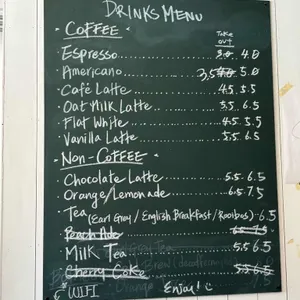 DRINKS MENU
· COFFEE ·
TAKE OUT
Espresso........ 3.0 4.0
Americano........ 3.5 4.0 5.0
Café Latte........ 4.5 5.5
Oat Milk Latte........ 5.5 6.5
Flat White........ 4.5 5.5
Vanilla Latte........ 5.5 6.5
· NON-COFFEE ·
Chocolate Latte........ 5.5 6.5
Orange/Lemonade........ 6.5 7.5
Tea (Earl Gray / English Breakfast / Rooibos) 6.5
Peach Ade........ 6.5 7.5
Milk Tea........ 5.5 6.5
Cherry Coke........ 5.5 6.5
WIFI Enjoy!